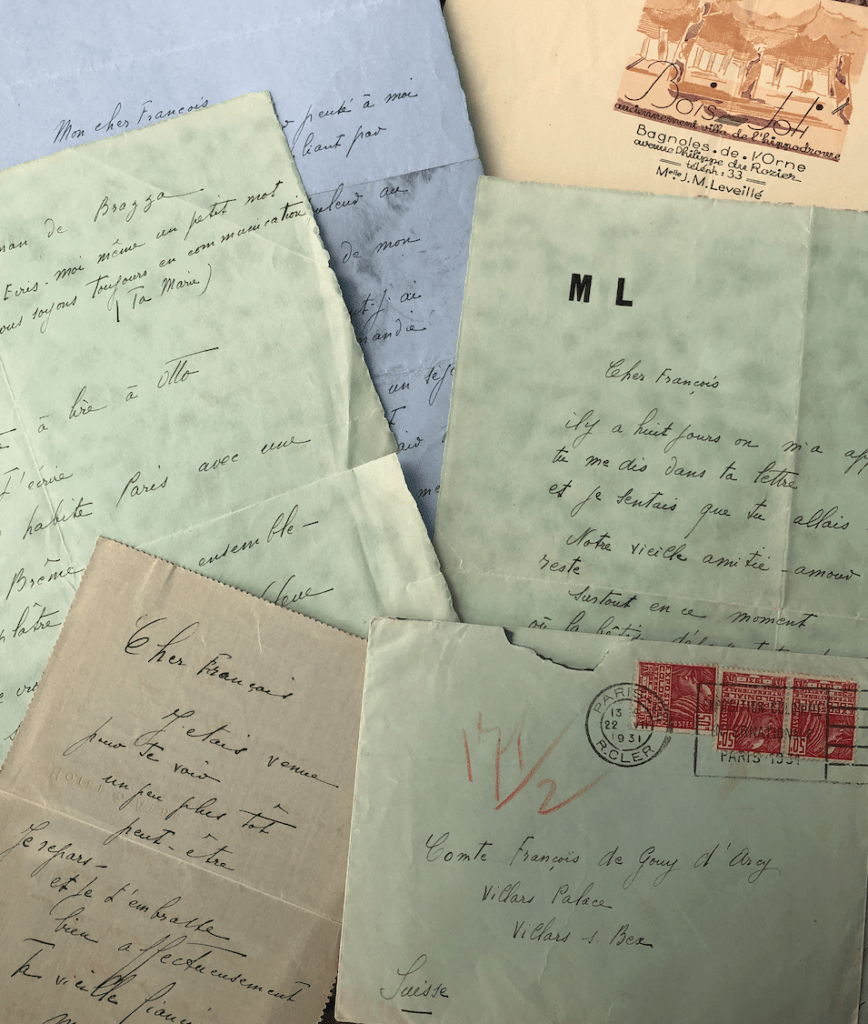 Mon cher François
pensé à moi
de mon
un séj
Bois Joli
anciennement villa de l'hippodrome
Bagnoles-de-l'Orne
avenue Philippe du Rozier
téléph: 33
Melle J.M. Leveillé
man de Brazza
Ecris-moi même un petit mot
soyons toujours en communication
(Ta Marie)
à lire à Otto
J'écrie
habite Paris avec une
Brême ensemble-
M L
Cher François
il y a huit jours on m'a app
tu me dis dans ta lettre
et je sentais que tu allais
Notre vieille amitié-amour
reste
surtout en ce moment
où la
Cher François
J'étais venue
pour te voir
un peu plus tôt
peut-être
Je repars-
et je t'embrasse
bien affectueusement
Ta vieille
PARIS
13
22 VII
1931
R. CLER
POSTES
50
50
50
EXPOSITION COLONIALE
INTERNATIONALE
PARIS 1931
171/2
Comte François de Gouy d'Arcy
Villars Palace
Villars s. Bex
Suisse